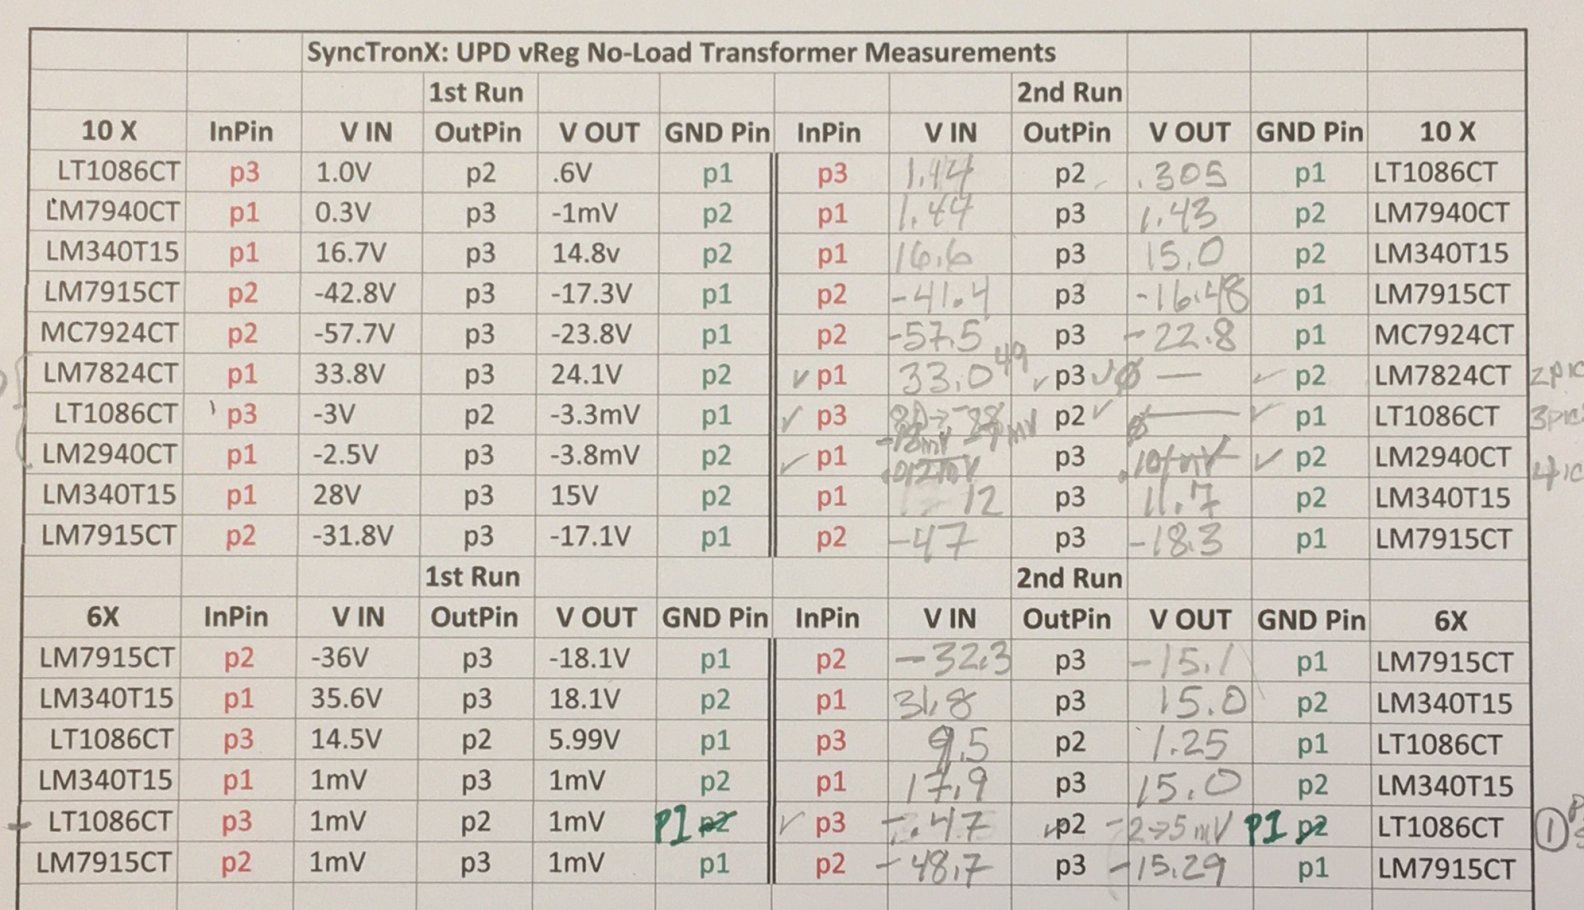 SyncTronX: UPD vReg No-Load Transformer Measurements
1st Run 2nd Run
10 X InPin V IN OutPin V OUT GND Pin InPin V IN OutPin V OUT GND Pin 10 X
LT1086CT p3 1.0V p2 .6V p1 p3 1.44 p2 .305 p1 LT1086CT
LM7940CT p1 0.3V p3 -1mV p2 p1 1.44 p3 1.43 p2 LM7940CT
LM340T15 p1 16.7V p3 14.8v p2 p1 16.6 p3 15.0 p2 LM340T15
LM7915CT p2 -42.8V p3 -17.3V p1 p2 -41.4 p3 -16.48 p1 LM7915CT
MC7924CT p2 -57.7V p3 -23.8V p1 p2 -57.5 p3 -22.8 p1 MC7924CT
LM7824CT p1 33.8V p3 24.1V p2 ✓ p1 33.0 49 ✓ p3 ✓ Ø — ✓ p2 LM7824CT 2pic
LT1086CT p3 -3V p2 -3.3mV p1 ✓ p3 p2 ✓ Ø — ✓ p1 LT1086CT 3pic
LM2940CT p1 -2.5V p3 -3.8mV p2 ✓ p1 p3 ✓ p2 LM2940CT 4pic
LM340T15 p1 28V p3 15V p2 p1 12 p3 11.7 p2 LM340T15
LM7915CT p2 -31.8V p3 -17.1V p1 p2 -47 p3 -18.3 p1 LM7915CT
1st Run 2nd Run
6X InPin V IN OutPin V OUT GND Pin InPin V IN OutPin V OUT GND Pin 6X
LM7915CT p2 -36V p3 -18.1V p1 p2 -32.3 p3 -15.1 p1 LM7915CT
LM340T15 p1 35.6V p3 18.1V p2 p1 31.8 p3 15.0 p2 LM340T15
LT1086CT p3 14.5V p2 5.99V p1 p3 9.5 p2 1.25 p1 LT1086CT
LM340T15 p1 1mV p3 1mV p2 p1 17.9 p3 15.0 p2 LM340T15
LT1086CT p3 1mV p2 1mV P1 p2 ✓ p3 -.47 ✓ p2 -2→5 mV P1 p2 LT1086CT 1
LM7915CT p2 1mV p3 1mV p1 p2 -48.7 p3 -15.29 p1 LM7915CT